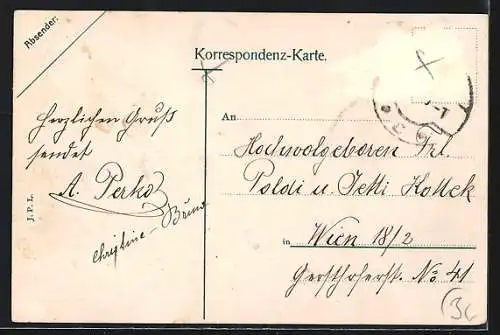 Absender:
Korrespondenz-Karte.
An
Herzlichen Gruß
sendet
A. Perko
Christine – Bruno
J. P. L.
Hochwolgeboren Frl.
Poldi u. Jetti Kottek
in Wien 18/2
Gersthoferst. No 41
34